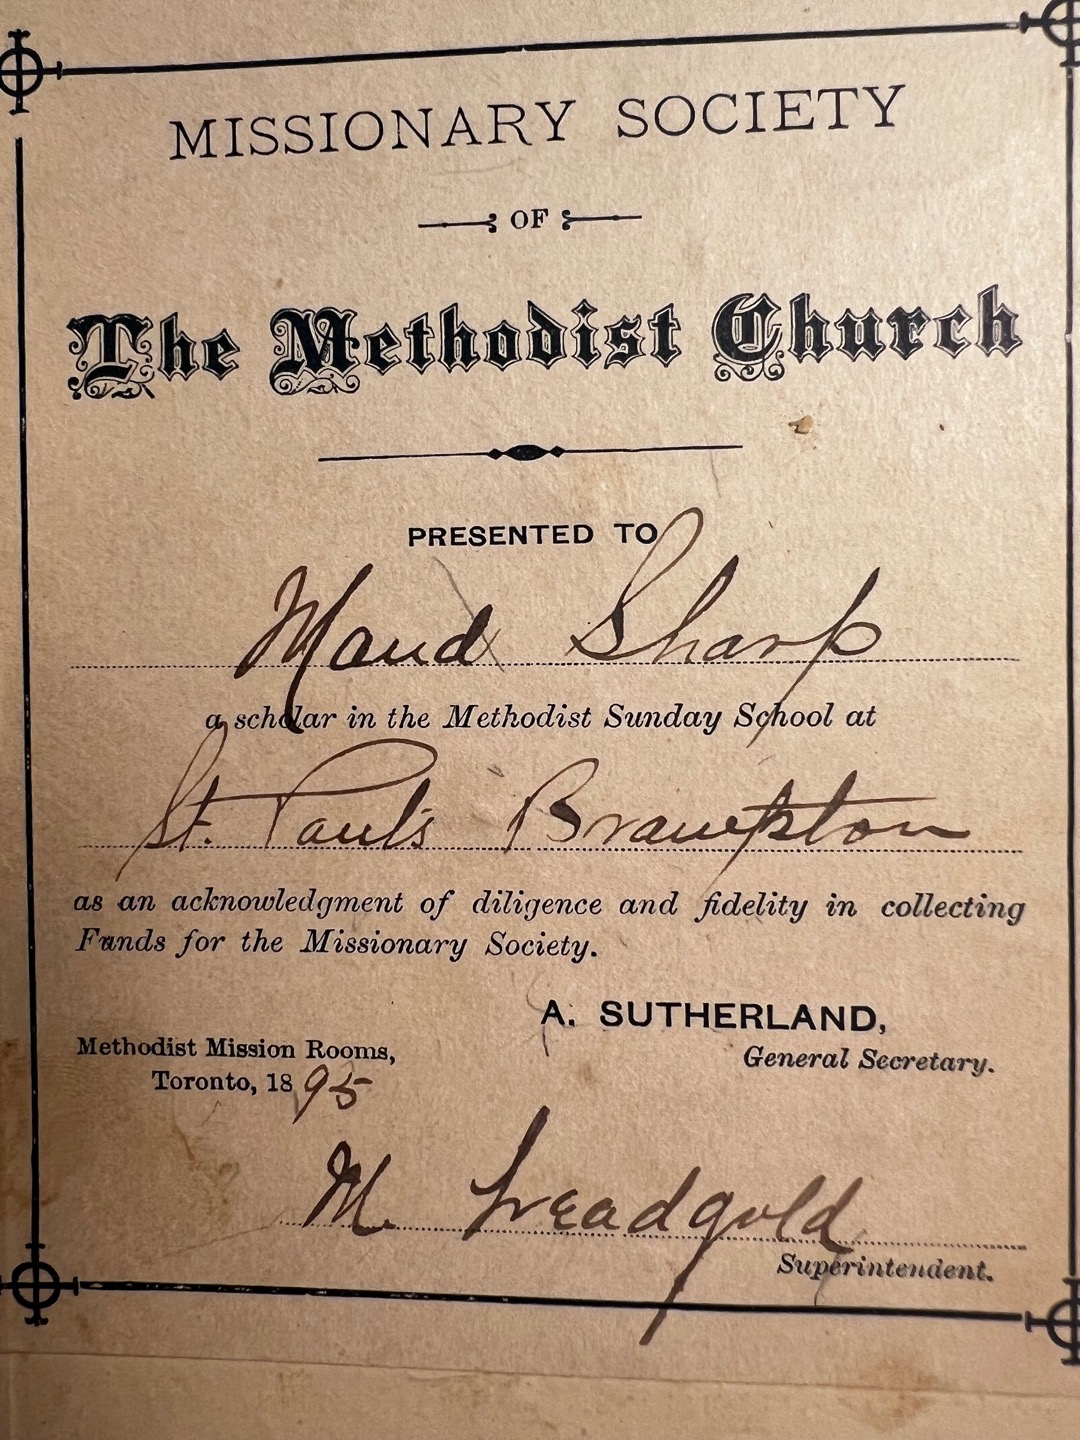 MISSIONARY SOCIETY
OF
The Methodist Church
PRESENTED TO
Maud Sharp
a scholar in the Methodist Sunday School at
St. Paul's Brampton
as an acknowledgment of diligence and fidelity in collecting
Funds for the Missionary Society.
A. SUTHERLAND,
General Secretary.
Methodist Mission Rooms,
Toronto, 1895
M. Treadgold
Superintendent.